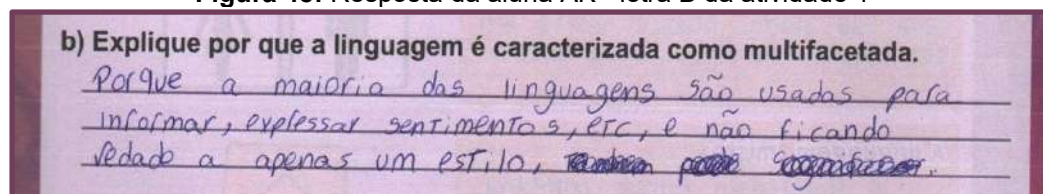 Figura 43: Resposta da aluna AK - letra B da atividade 1
b) Explique por que a linguagem é caracterizada como multifacetada.
Porque a maioria das linguagens são usadas para
informar, explessar sentimentos, etc, e não ficando
vedado a apenas um estilo,